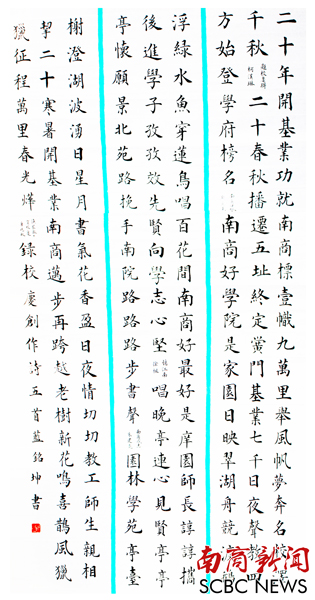 二十年開基業功就南商標壹幟九萬里舉風帆夢奔名校
千秋 二十春秋播遷五址終定黌門基業七千日夜聲教四
方始登學府榜名 南商好學院是家園日映翠湖舟競
浮綠水魚穿蓮鳥唱百花間南商好最好是庠園師長諄諄攜
後進學子孜孜效先賢向學志心堅 憶江南 唱晚亭連心見賢亭亭
亭懷願景北苑路挽手南院路路路步書聲 園林學苑亭臺
榭澄湖波湧日星月書氣花香盈日夜情切切教工師生親相
挈二十寒暑開基業南商邁步再跨越老樹新花鳴喜鵲風獵
獵征程萬里春光燁 錄校慶創作詩五首藍銘坤書
南商新闻
SCBC NEWS